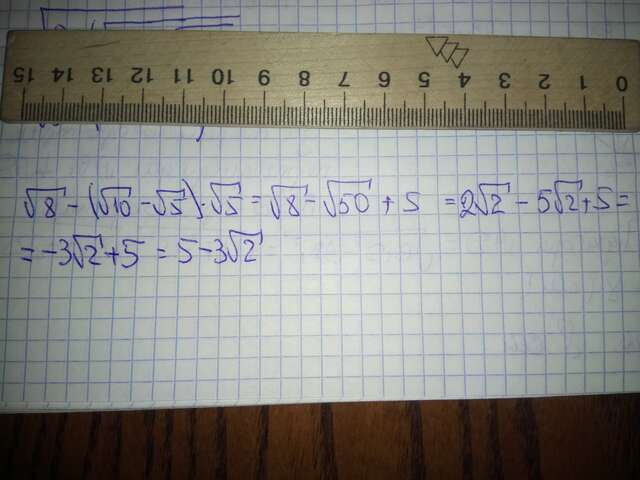 15 14 13 12 11 10 9 8 7 6 5 4 3 2 1 0
√8 - (√10 - √5)·√5 = √8 - √50 + 5 = 2√2 - 5√2 + 5 =
= -3√2 + 5 = 5 - 3√2